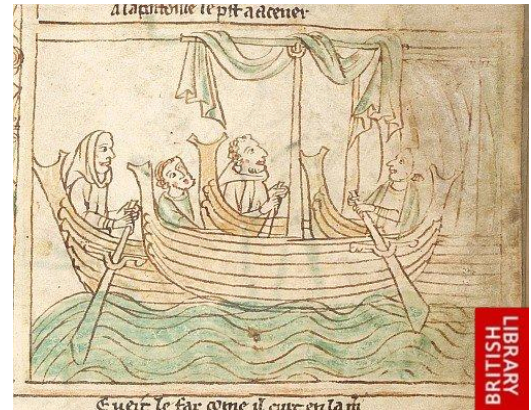 le a acener
E ueit le far come il curt en la
BRITISH
LIBRARY